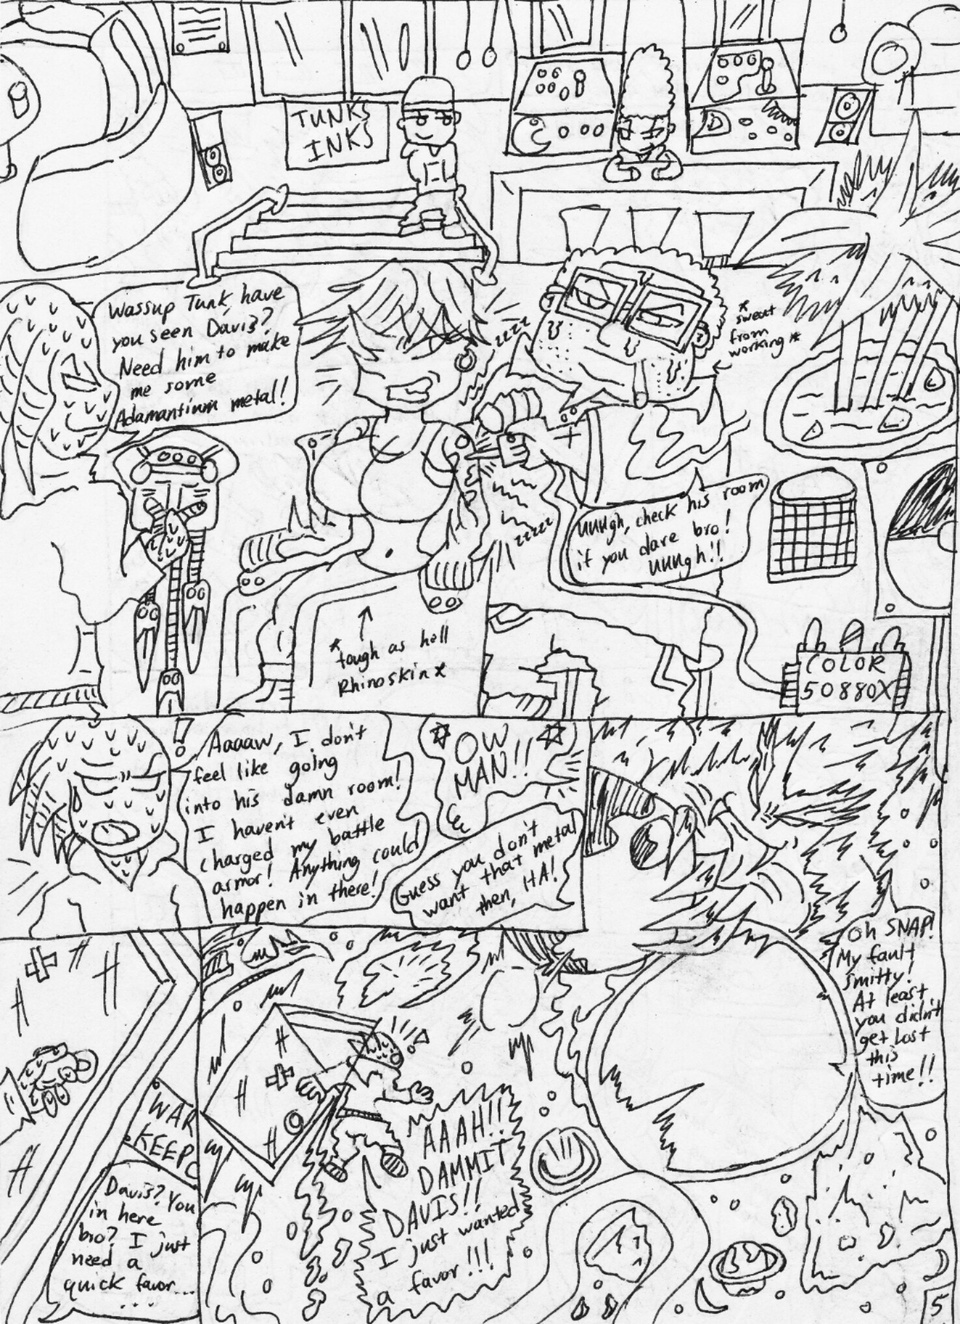 TUNKS
INKS
Wassup Tunk, have
you seen Davis?
Need him to make
me some
Adamantium metal!
zzzz
* sweat
from
working *
zzzz
uuugh, check his room
if you dare bro!
uuugh!!
* tough as hell
Rhinoskin *
COLOR
50880X
!
Aaaaw, I don't
feel like going
into his damn room!
I haven't even
charged my battle
armor! Anything could
happen in there!
OW
MAN!!
Guess you don't
want that metal
then, HA!
Oh SNAP!
My fault
smitty!
At least
you didn't
get lost
this
time!!
WAR
KEEP
Davis? You
in here
bro? I just
need a
quick favor...
AAAH!!
DAMMIT
DAVIS!!
I just wanted
a favor!!!
5